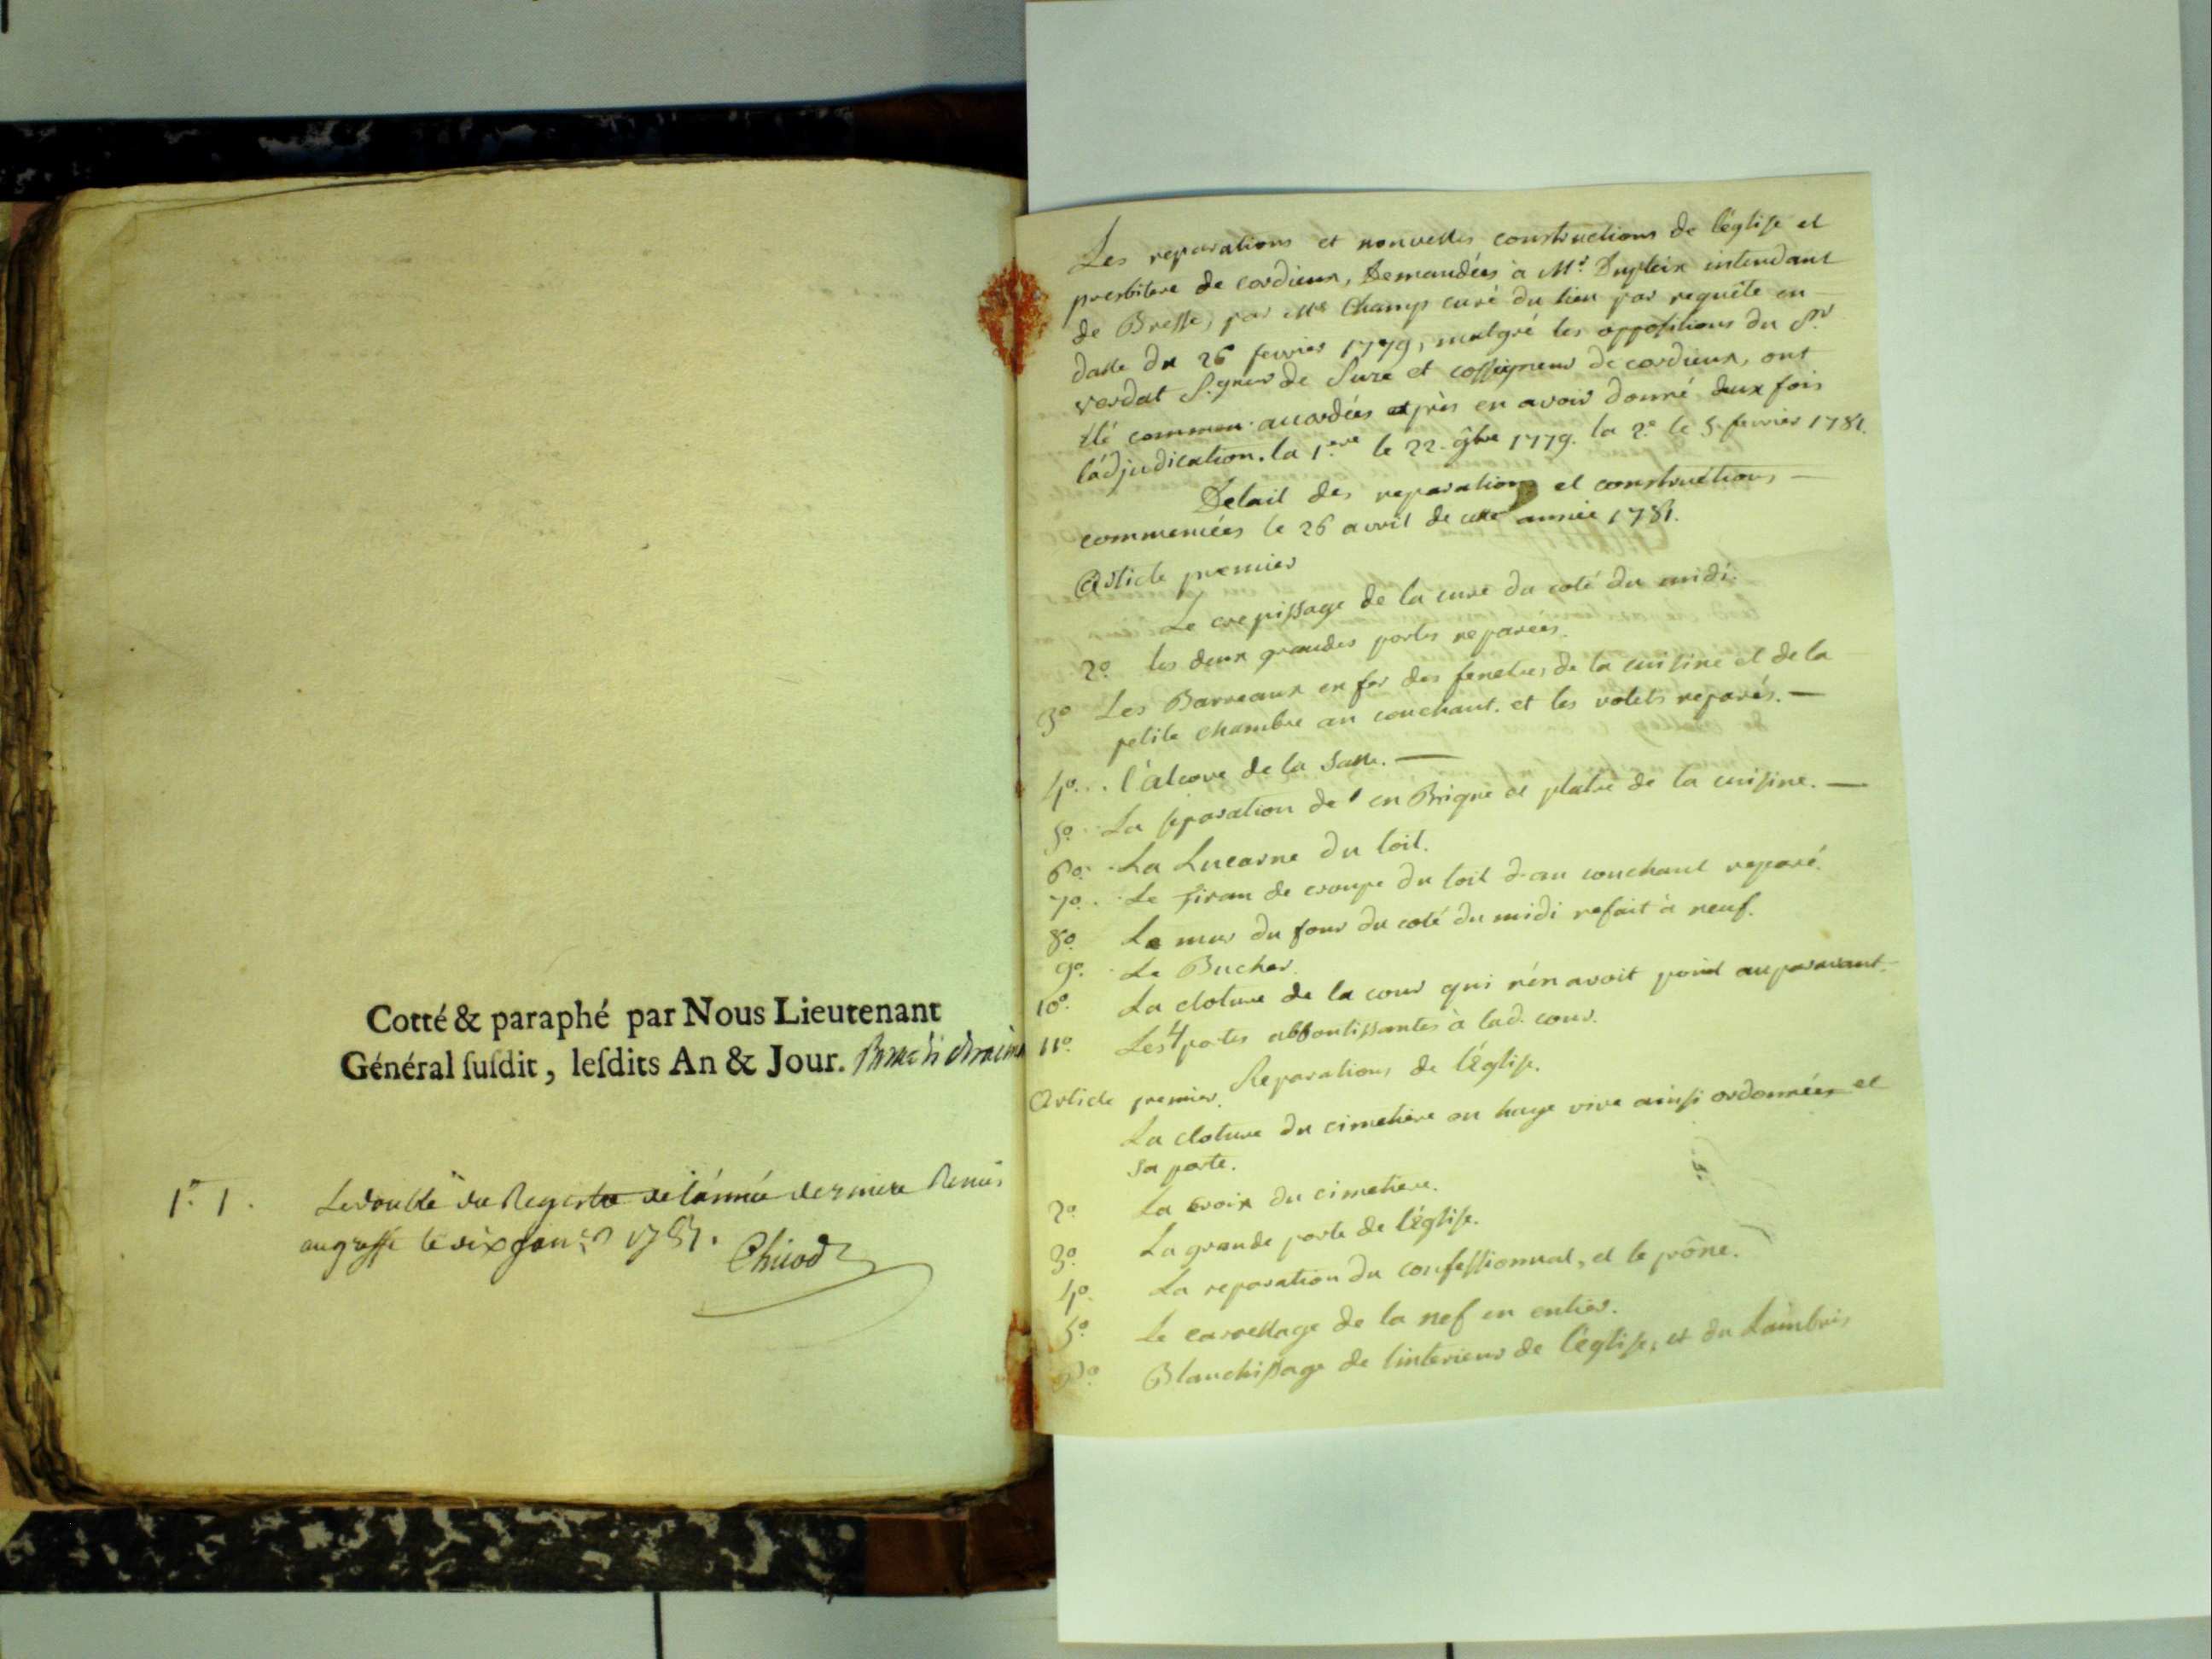 Cotté & paraphé par Nous Lieutenant
Général ſuſdit, leſdits An & Jour.
1. 1. Le double du Registre de l'année derniere Remis
au greffe le six janv. 1781. Chicod
Les reparations et nouvelles constructions de l'église et
presbitere de cordieux, Demandées à Mr. Dupleix intendant
de Bresse, par Mre Champ curé du lieu par requête en
datte du 26 fevrier 1779, malgré les oppositions du Sr.
verdat S.gneur de Sure et cosseigneur de cordieux, ont
été accordées après en avoir donné deux fois
l'adjudication. la 1.ere le 22. 9bre 1779. la 2.e le 5. fevrier 1781.
Detail des reparations et constructions
commencées le 26 avril de cette année 1781.
Article premier
Le crepissage de la cure du coté du midi.
2º. les deux grandes portes reparées.
3º Les Barreaux en fer des fenetres de la cuisine et de la
petite chambre au couchant. et les volets reparés.
4º. . l'alcove de la salle.
5º. La separation de en Brique et platre de la cuisine.
6º. La Lucarne du toit.
7º. Le Tiran de croupe du toit d au couchant reparé.
8º. Le mur du four du coté du midi refait à neuf.
9º. Le Bucher.
10º. La cloture de la cour qui n'en avoit point auparavant.
11º. Les 4 portes abboutissantes à lad. cour.
Reparations de l'Église.
Article premier.
La cloture du cimetiere en haye vive ainsi ordonnées et
sa porte.
2º. La croix du cimetiere.
3º. La grande porte de l'église.
4º. La reparation du confessionnal, et le prône.
5º. Le carrellage de la nef en entier.
6º. Blanchissage de l'interieur de l'église, et du Lambris